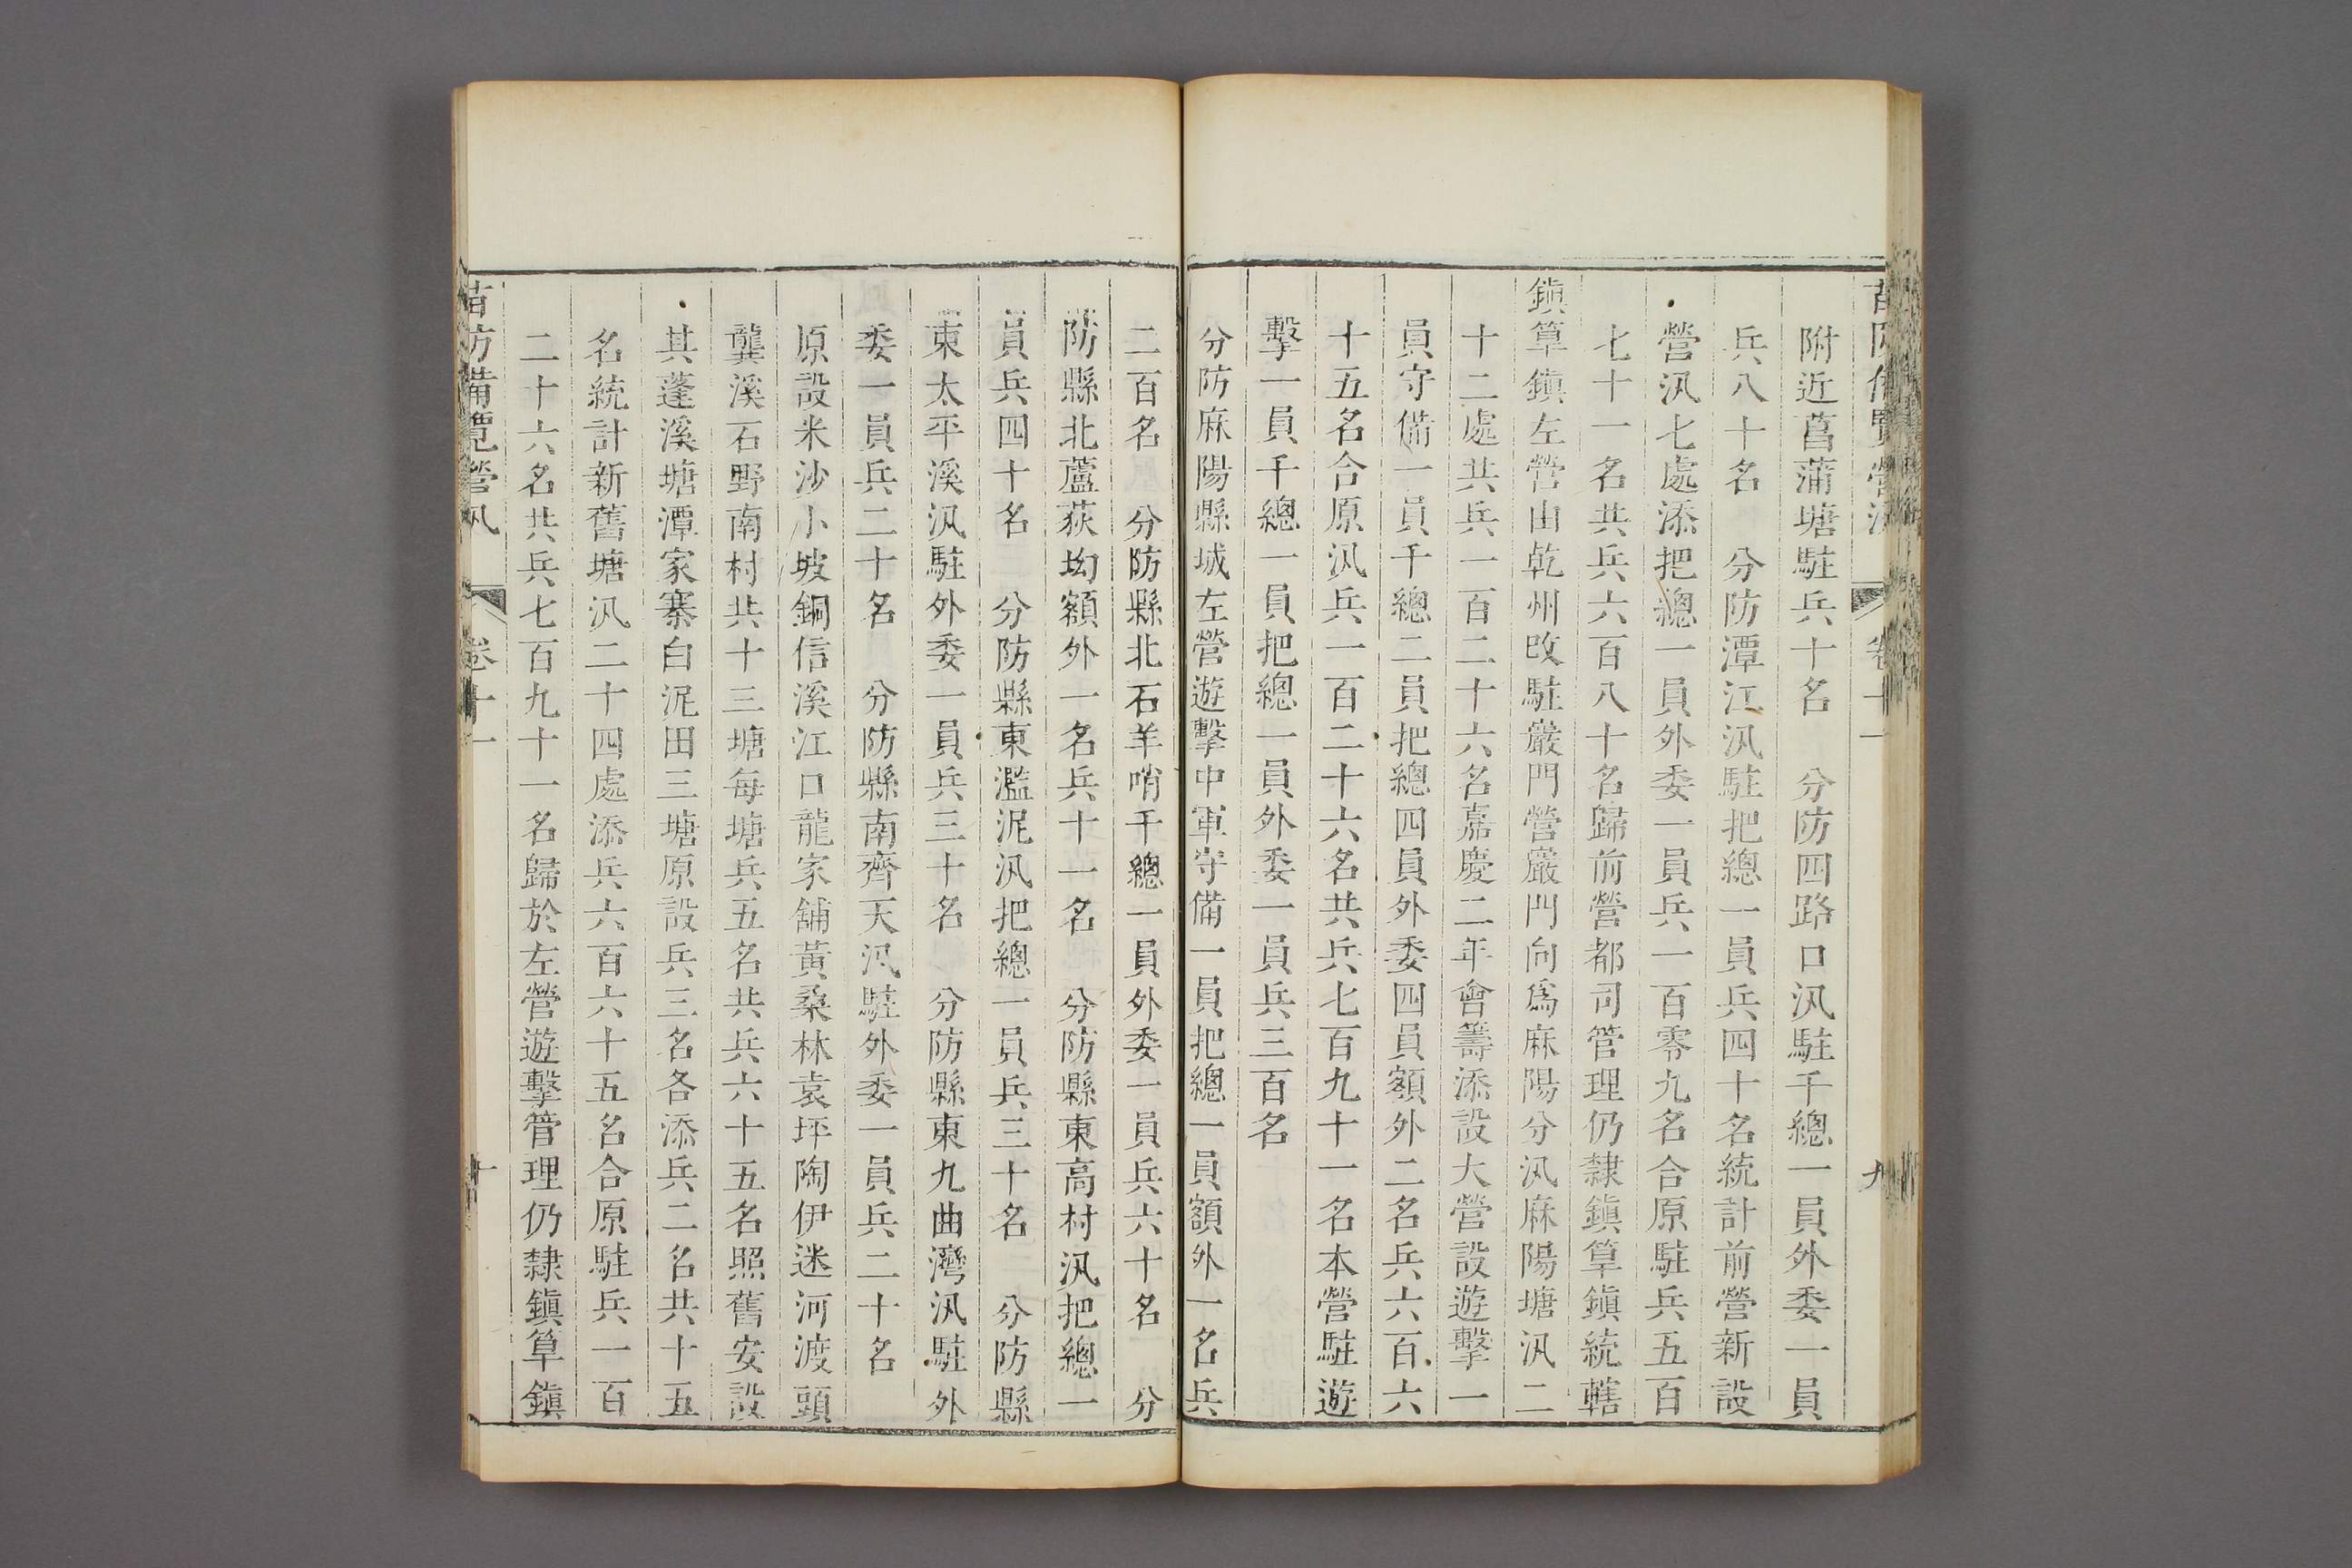 苗防備覽營汛 卷十一 九
附近菖蒲塘駐兵十名 分防四路口汛駐千總一員外委一員
兵八十名 分防潭江汛駐把總一員兵四十名統計前營新設
營汛七處添把總一員外委一員兵一百零九名合原駐兵五百
七十一名共兵六百八十名歸前營都司管理仍隸鎮筸鎮統轄
鎮筸鎮左營由乾州改駐巖門營巖門向爲麻陽分汛麻陽塘汛二
十二處共兵一百二十六名嘉慶二年會籌添設大營設遊擊一
員守備一員千總二員把總四員外委四員額外二名兵六百六
十五名合原汛兵一百二十六名共兵七百九十一名本營駐遊
擊一員千總一員把總一員外委一員兵三百名
分防麻陽縣城左營遊擊中軍守備一員把總一員額外一名兵
二百名 分防縣北石羊哨千總一員外委一員兵六十名 分
防縣北蘆荻坳額外一名兵十一名 分防縣東高村汛把總一
員兵四十名 分防縣東濫泥汛把總一員兵三十名 分防縣
東太平溪汛駐外委一員兵三十名 分防縣東九曲灣汛駐外
委一員兵二十名 分防縣南齊天汛駐外委一員兵二十名
原設米沙小坡銅信溪江口龍家舖黃桑林袁坪陶伊迷河渡頭
龔溪石野南村共十三塘每塘兵五名共兵六十五名照舊安設
其蓬溪塘潭家寨白泥田三塘原設兵三名各添兵二名共十五
名統計新舊塘汛二十四處添兵六百六十五名合原駐兵一百
二十六名共兵七百九十一名歸於左營遊擊管理仍隸鎮筸鎮
苗防備覽營汛 卷十一 十